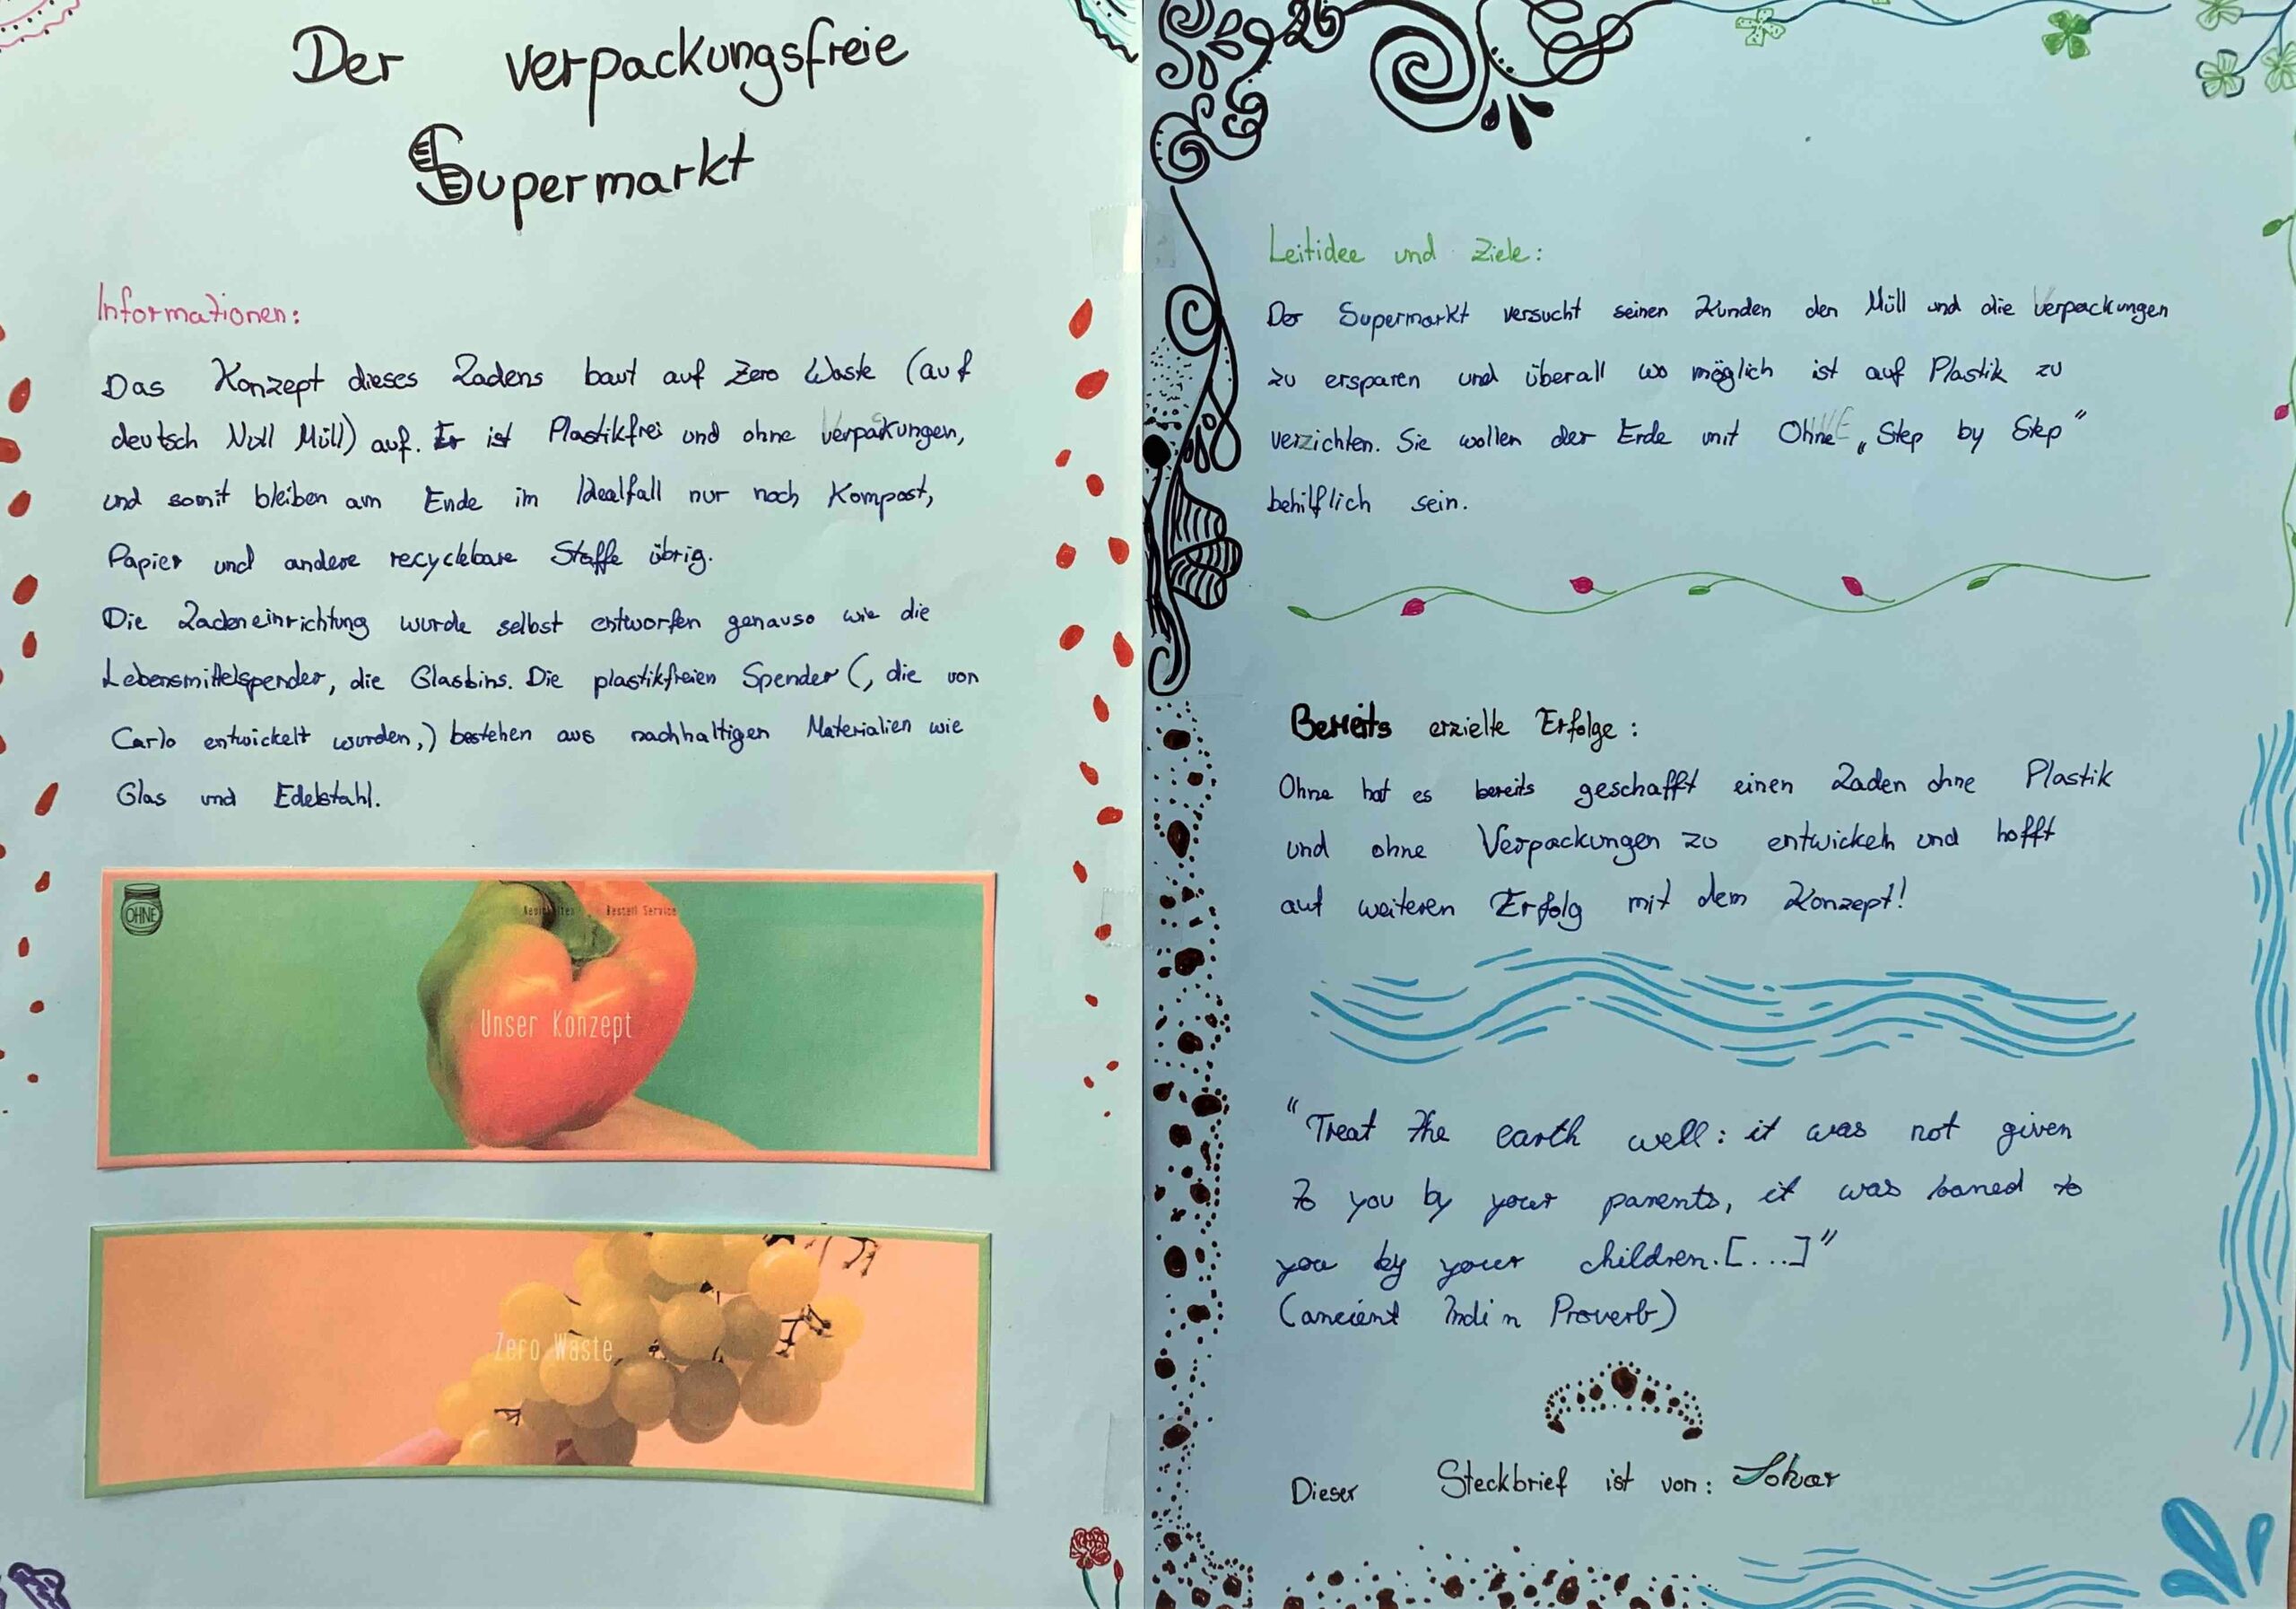 Der verpackungsfreie
Supermarkt
Informationen:
Das Konzept dieses Ladens baut auf Zero Waste (auf
deutsch Null Müll) auf. Er ist Plastikfrei und ohne Verpakungen,
und somit bleiben am Ende im Idealfall nur noch Kompost,
Papier und andere recyclebare Stoffe übrig.
Die Ladeneinrichtung wurde selbst entworfen genauso wie die
Lebensmittelspender, die Glasbins. Die plastikfreien Spender (, die von
Carlo entwickelt wurden,) bestehen aus nachhaltigen Materialien wie
Glas und Edelstahl.
OHNE
Bestell Service
Unser Konzept
Zero Waste
Leitidee und Ziele:
Der Supermarkt versucht seinen Kunden den Müll und die Verpackungen
zu ersparen und überall wo möglich ist auf Plastik zu
verzichten. Sie wollen der Erde mit Ohne „Step by Step"
behilflich sein.
Bereits erzielte Erfolge:
Ohne hat es bereits geschafft einen Laden ohne Plastik
und ohne Verpackungen zu entwickeln und hofft
auf weiteren Erfolg mit dem Konzept!
"Treat the earth well: it was not given
to you by your parents, it was loaned to
you by your children. [...]"
(ancient Indi n Proverb)
Dieser Steckbrief ist von: